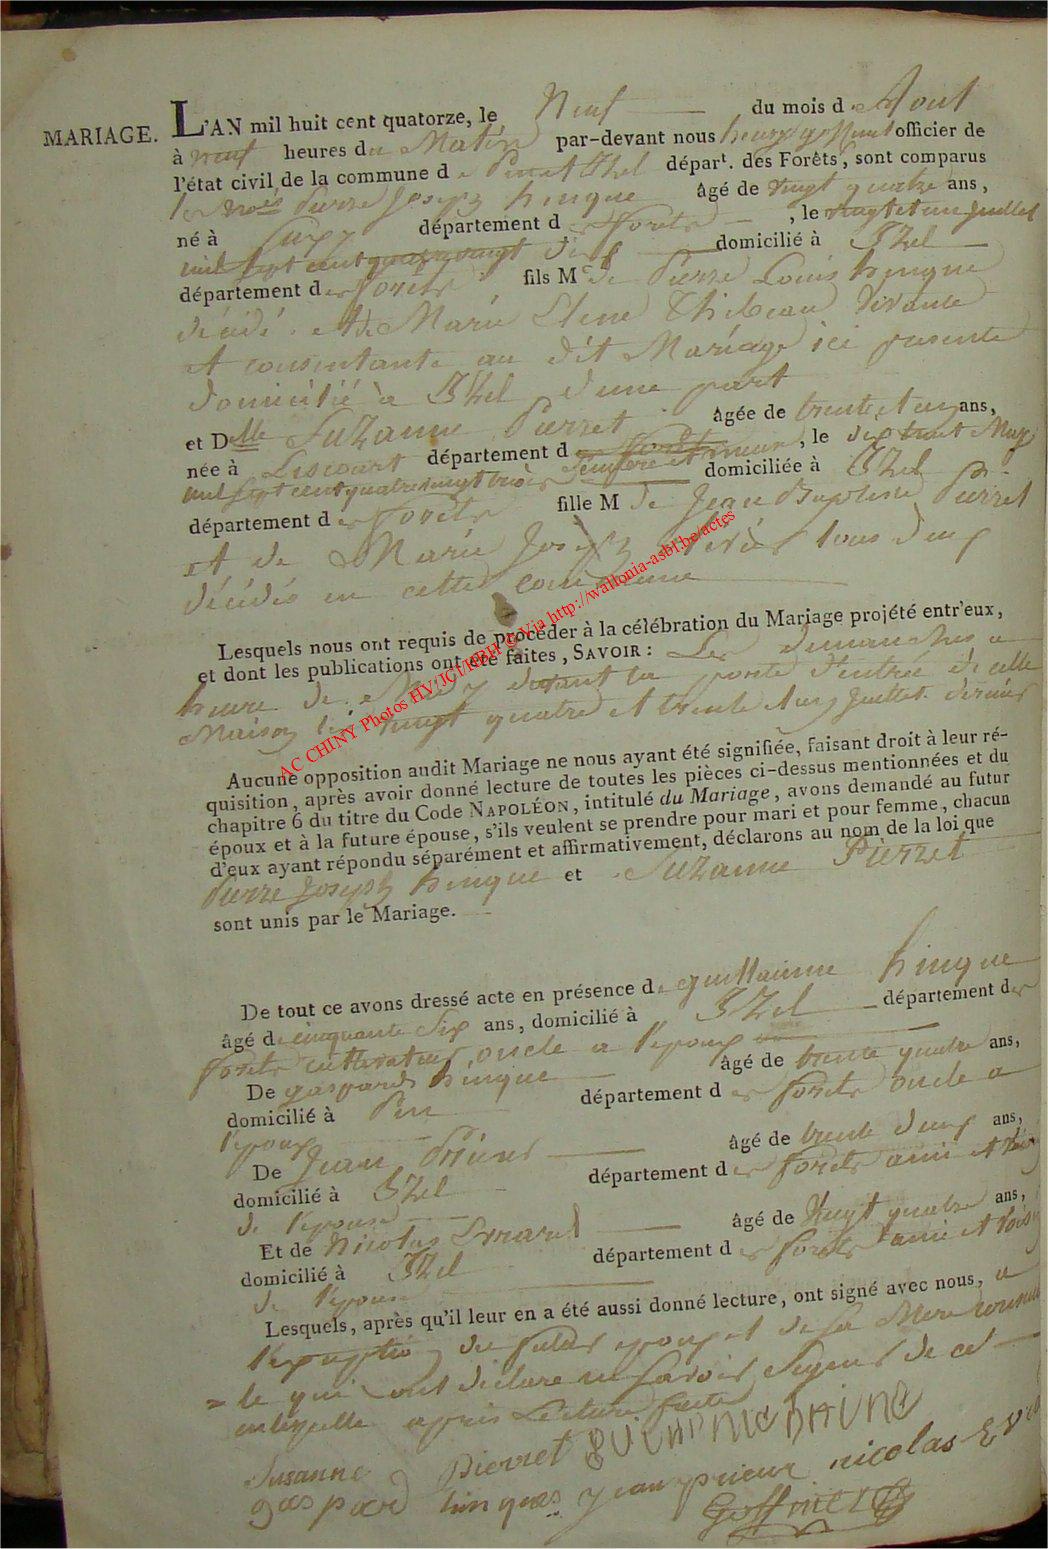 MARIAGE.
L'AN mil huit cent quatorze, le Neuf du mois d'Aout
à neuf heures du Matin par-devant nous officier de
l'état civil de la commune de dépar<sup>t</sup>. des Forêts, sont comparus
Pierre Joseph hinque âgé de vingt quatre ans,
né à département des forets, le vingt et un Juillet
mil sept cent quatre vingt dix domicilié à IZel
département des forets fils M de Pierre Louis hinque
décédé et de Marie Elene Thibeau vivante
et consentante au dit Mariage ici presente
domicilié à IZel d'une part
et D<sup>lle</sup> SuZanne Pierret âgée de trente et un ans,
née à département d , le dix huit May
mil sept cent quatre vingt trois domiciliée à IZel
département des forets fille M de Jean Baptiste Pierret
et de Marie Joseph tous deux
décédés en cette commune
Lesquels nous ont requis de procéder à la célébration du Mariage projété entr'eux,
et dont les publications ont été faites, SAVOIR : Les dimanches a
heure de Midy devant la porte d'entrée de cette
Maison les vingt quatre et trente et un Juillet dernier
Aucune opposition audit Mariage ne nous ayant été signifiée, faisant droit à leur ré-
quisition, après avoir donné lecture de toutes les pièces ci-dessus mentionnées et du
chapitre 6 du titre du Code NAPOLÉON, intitulé du Mariage, avons demandé au futur
époux et à la future épouse, s'ils veulent se prendre pour mari et pour femme, chacun
d'eux ayant répondu séparément et affirmativement, déclarons au nom de la loi que
Pierre Joseph hinque et SuZanne Pierret
sont unis par le Mariage.
De tout ce avons dressé acte en présence de guillaume hinque
âgé de cinquante six ans, domicilié à IZel département des
forets cultivateur oncle a l'epoux
De gaspard hinque âgé de trente quatre ans,
domicilié à Pin département des forets oncle a
l'epoux
De Jean Prieur âgé de trente deux ans,
domicilié à IZel département des forets ami et
de l'epouse
Et de Nicolas Evrard âgé de vingt quatre ans,
domicilié à IZel département des forets ami et voisin
de l'epouse
Lesquels, après qu'il leur en a été aussi donné lecture, ont signé avec nous, a
l'exception du futur epoux et de sa Mere
= le qui ont declare ne savoir signer de ce
interpelle apres Lecture faite
Susanne Pierret
gaspard hinques jean prieur nicolas
AC CHINY Photos HV/JCI/RBH © Via http://wallonia-asbl.be/actes